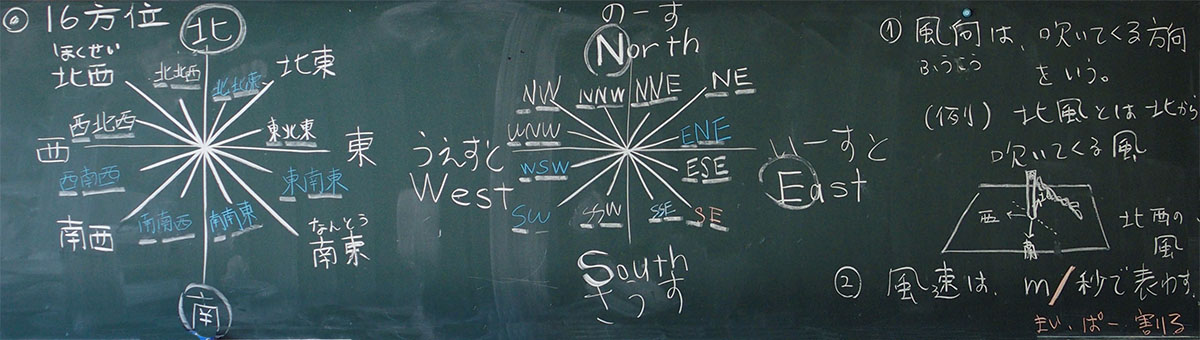 ◎ 16方位
北
ほくせい
北西
北北西
北北東
北東
西北西
東北東
西
東
西南西
東南東
南南西
南南東
南西
なんとう
南東
南
のーす
North
NW
NNW
NNE
NE
WNW
ENE
うえすと
West
いーすと
East
WSW
ESE
SW
SSW
SSE
SE
South
さうす
① 風向は、吹いてくる方向
ふうこう
をいう。
(例) 北風とは北から
吹いてくる風
西
南
北西の
風
② 風速は、m/秒で表わす
まい.ぱー 割る